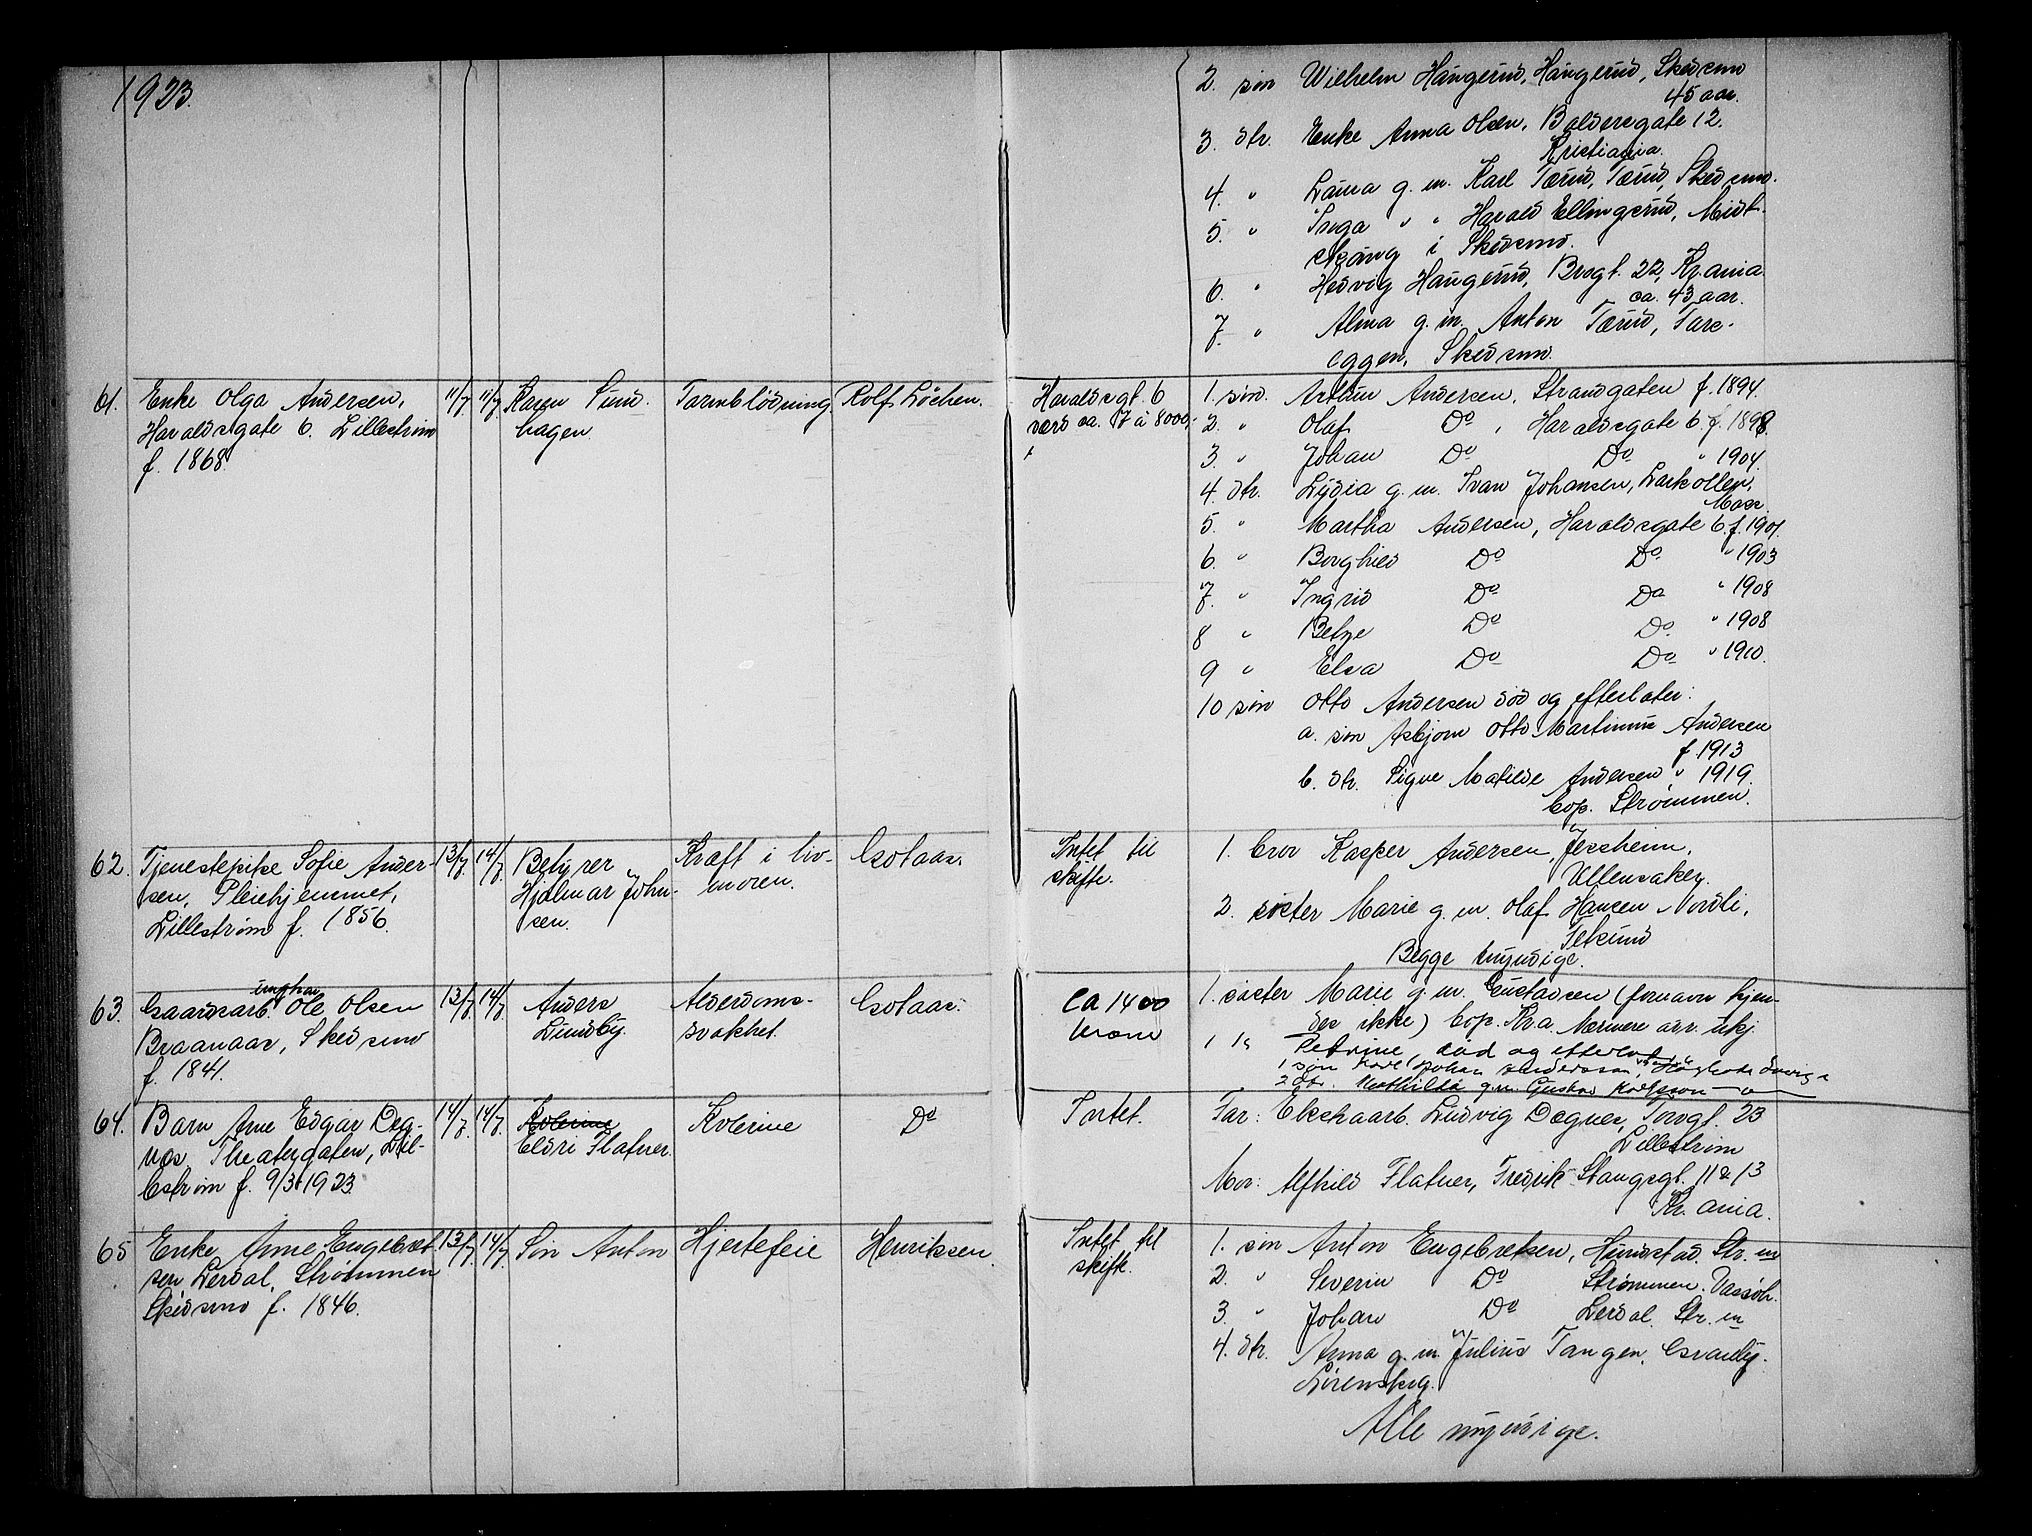 1923.
2. søn Wilhelm Haugerud, Haugerud, Skedsmo
45 aar.
3. dtr. Enke Anna Olsen, Baldersgate 12.
Kristiania.
4. " Laura g. m. Karl Tærud, Tærud, Skedsmo.
5. " Inga " " Harald Ellingsrud, Midt-
skaug i Skedsmo.
6. " Hedvig Haugerud, Brogt. 22, Kr.ania
ca. 43 aar.
7. " Alma g. m. Anton Tærud, Tare-
eggen, Skedsmo.
61. Enke Olga Andersen, 11/7 11/7 Karen Sund- Tarmblödning Rolf Löchen. Haraldsgt. 6 1. søn. Arthur Andersen, Strandgaten f. 1894.
Haraldsgate 6. Lillestrøm hagen. værd ca. 7 à 8000,- 2. " Olaf Do , Haraldsgate 6. f. 1898.
f. 1868. 3. " Johan Do Do " 1904.
4. dtr. Lydia g. m. Ivar Johansen, Larkollen,
Moss.
5. " Martha Andersen, Haraldsgate 6. f. 1901.
6. " Borghild Do Do " 1903
7. " Ingrid Do Do " 1908
8 " Betze Do Do " 1908
9 " Elsa Do Do " 1910.
10 søn Otto Andersen død og efterlater:
a. søn Asbjørn Otto Martinius Andersen
f. 1913
b. dtr. Signe Matilde Andersen " 1919.
bop. Strømmen.
62. Tjenestepike Sofie Ander- 13/7 14/7 Bestyrer Kræft i liv- Gotaas. Intet til 1. bror Kasper Andersen, Jessheim,
sen, Pleiehjemmet, Hjalmar John- moren. skifte. Ullensaker.
Lillestrøm f. 1856. sen. 2. søster Marie g. m. Olaf Hansen Nordli,
Fetsund
Begge myndige.
63. Gaardsarb. ungkar Ole Olsen 13/7 14/7 Anders Alderdoms- Gotaas. Ca 1400 1. søster Marie g. m. Gustavsen (fornavn kjen-
Braanaas, Skedsmo Lundby. svakhet. kroner des ikke) bop. Kr.a. Nærmere adr. ukj.
f. 1841. Petrine, död og efterlot
1 søn Karl Johan Andersson,
2 dtr. Mathilda g.m. Gustav Karlsson
64. Barn Arne Edgar Deg- 14/7 14/7 Kolerine Kolerine Do Intet. Far: Ekstraarb. Ludvig Degnes, Torvgt. 23
nes Theatergaten, Lil- Eldri Flatner. Lillestrøm
lestrøm f. 9/3 1923. Mor: Alfhild Flatner, Fredrik Stangsgt. 11 & 13
Kr. ania.
65 Enke Anne Engebret- 13/7 14/7 Søn Anton Hjertefeil Henriksen. Intet til 1. søn Anton Engebretsen, Hundstad. Str. m
sen Lerdal, Strømmen skifte. 2. " Severin Do Strømmen.
Skedsmo f. 1846. 3. " Johan Do Lerdal. Str. m
4. dtr. Anna g. m. Julius Tangen,
Lørenskog.
Alle myndige.